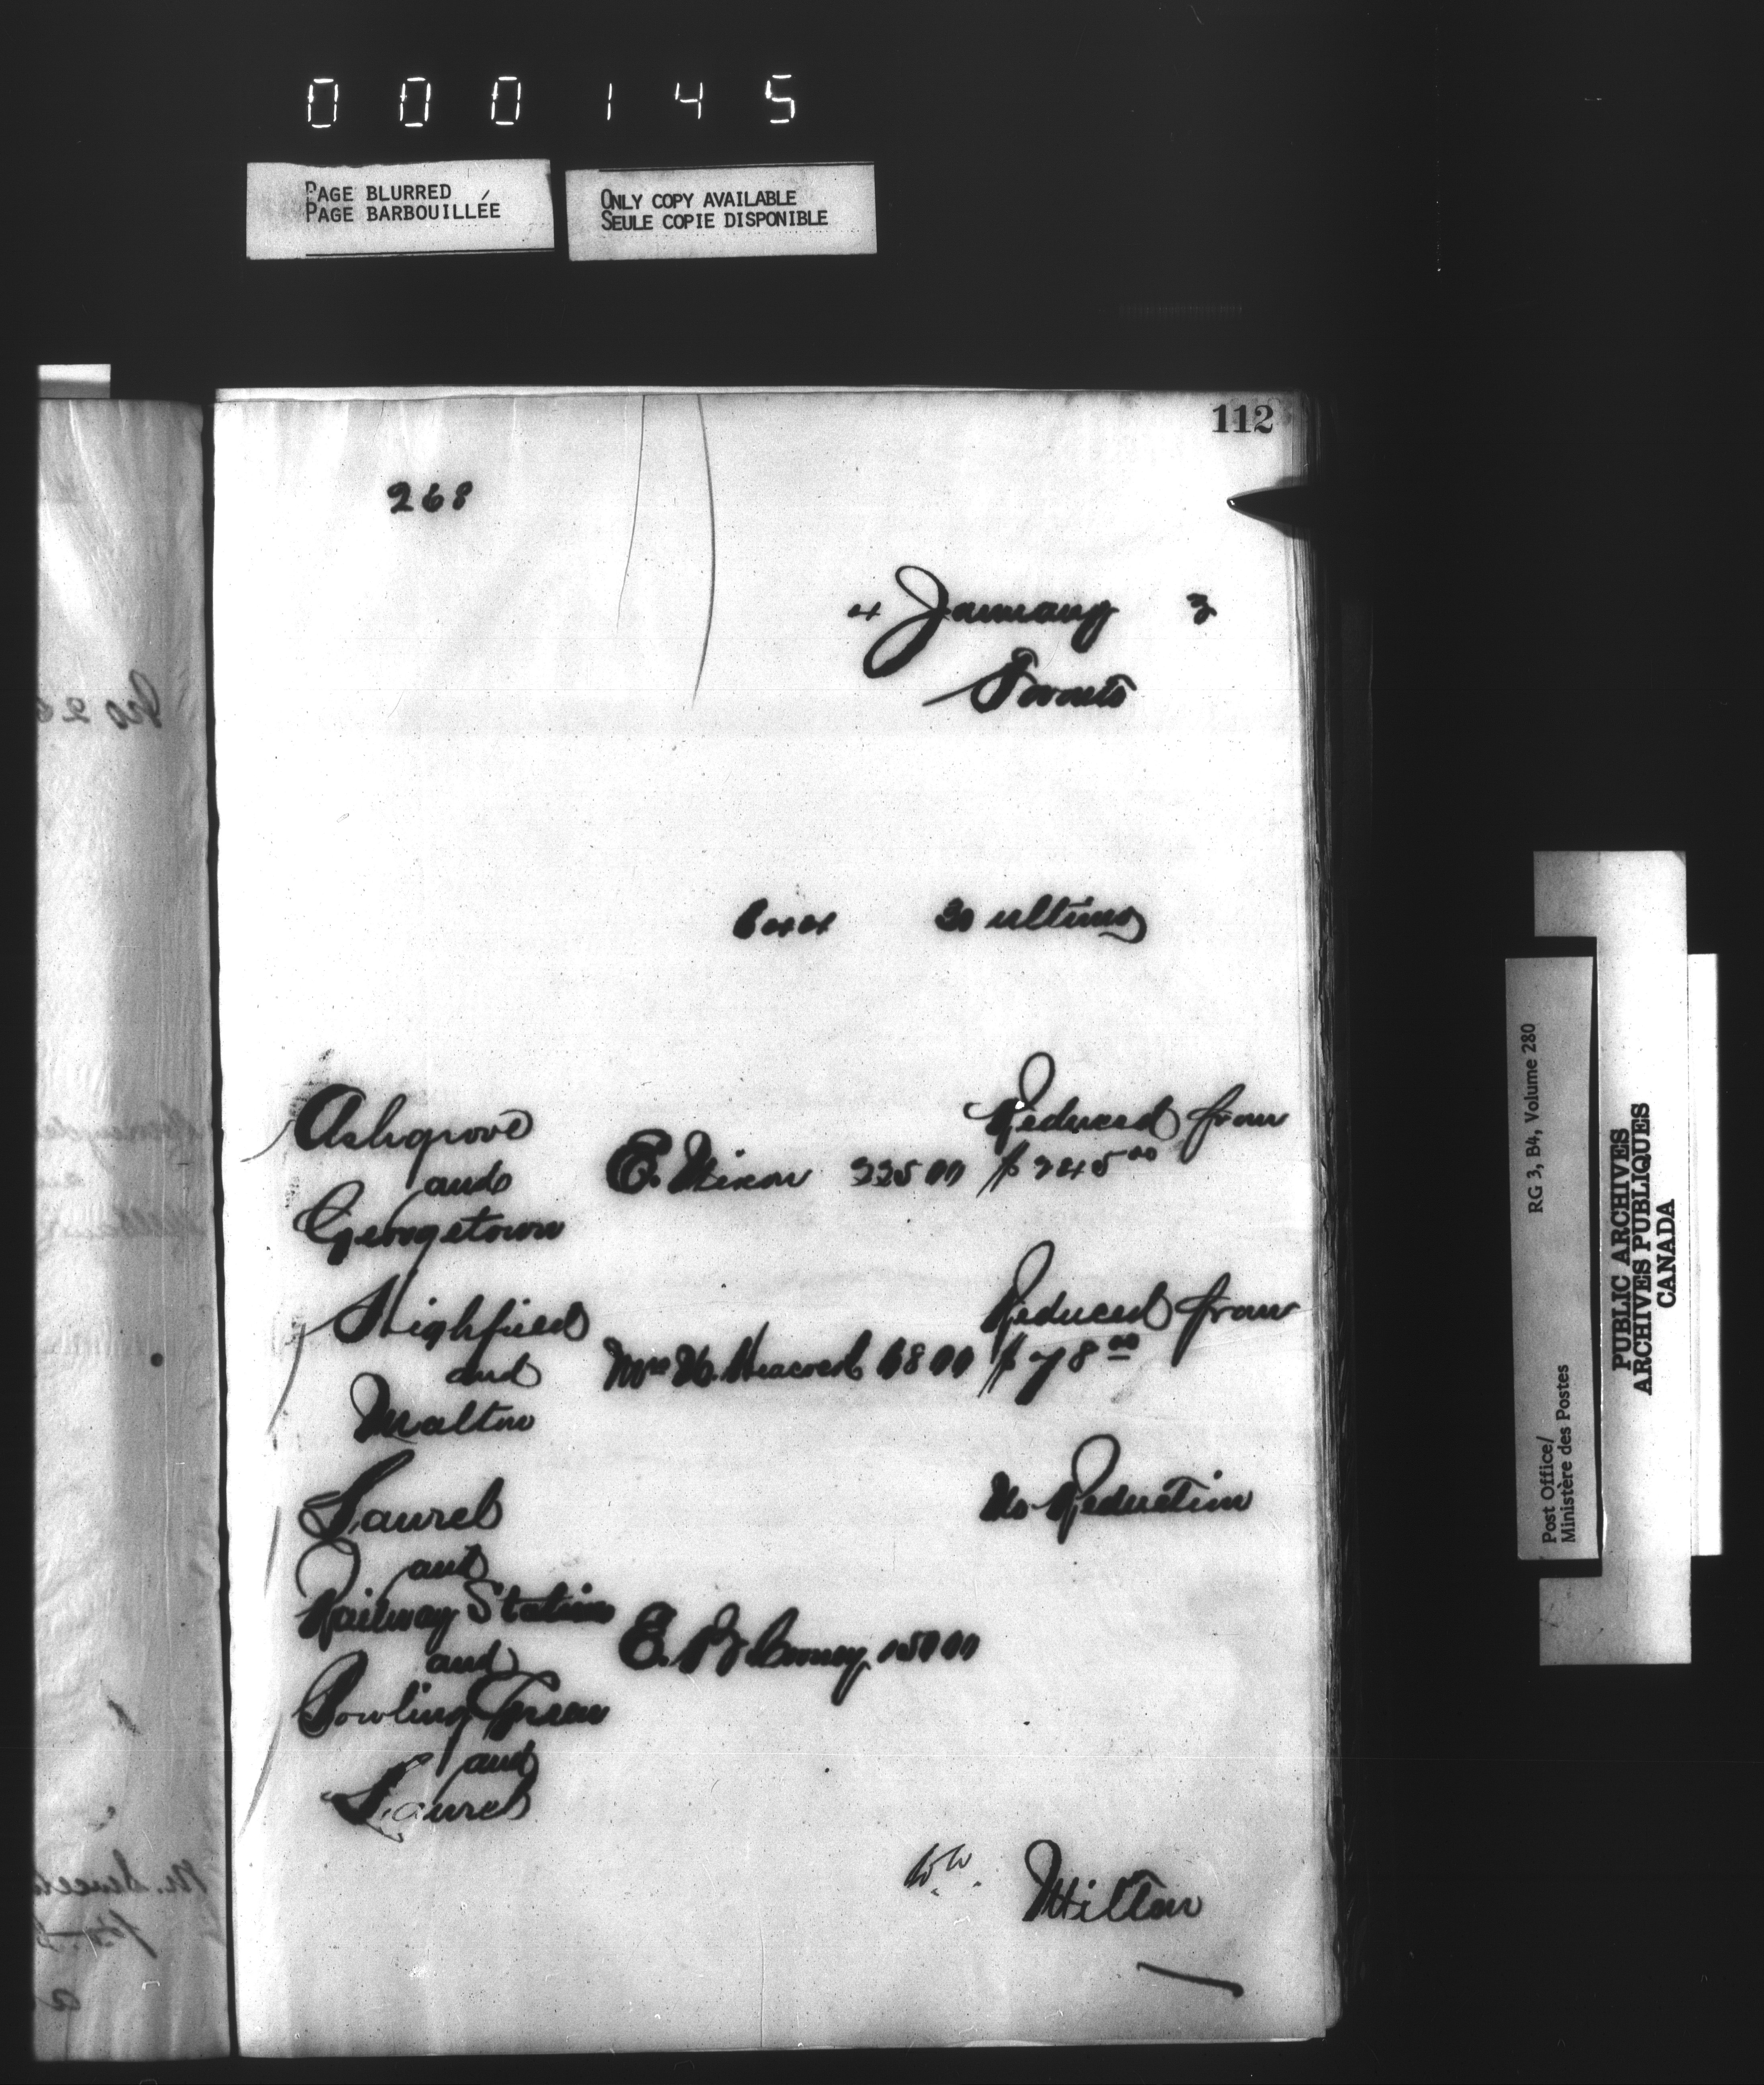 000145
PAGE BLURRED
PAGE BARBOUILLÉE
ONLY COPY AVAILABLE
SEULE COPIE DISPONIBLE
112
268
4 January 3
Toronto
644 30 ultimo
Ashgrove
and
Georgetown
E. Nixon 225 00
Reduced from
$ 245 00
Highfield
and
Malton
Mrs H. 68 00
Reduced from
$ 78 00
Laurel
and
Railway Station
and
Bowling Green
and
Laurel
E. 150 00
No Reduction
Milton
RG 3, B4, Volume 280
Post Office/
Ministère des Postes
PUBLIC ARCHIVES
ARCHIVES PUBLIQUES
CANADA